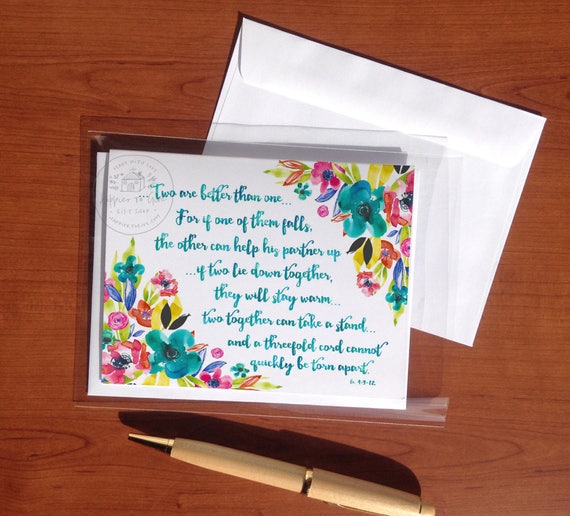 Two are better than one...
For if one of them falls,
the other can help his partner up
...if two lie down together,
they will stay warm...
two together can take a stand...
and a threefold cord cannot
quickly be torn apart.
4:9-12
MADE WITH LOVE
GIFT SHOP